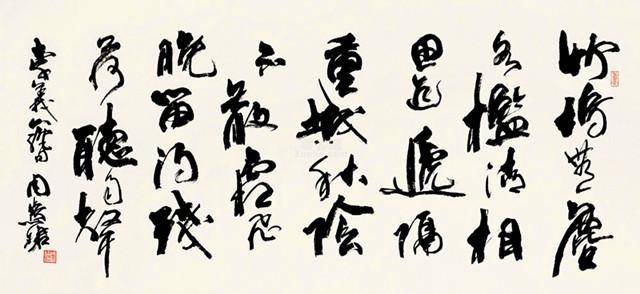 竹塢無塵
水檻清相
思迢遞隔
重城秋陰
不散霜飛
晚留得殘
荷聽雨聲
李義山詩 周慧珺